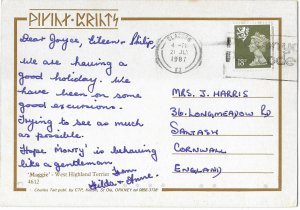 Dear Joyce, Eileen + Philip
We are having a
good holiday. We
have been on some
good excursions.
Trying to see as much
as possible.
Hope 'Monty' is behaving
like a gentleman
from
Hilda + Anne.
'Maggie' - West Highland Terrier
4612
GLASGOW
4 - 11
21 JLY
1987
18P
MRS. J. HARRIS
36. LONGMEADOW RD
SALTASH
CORNWALL
ENGLAND